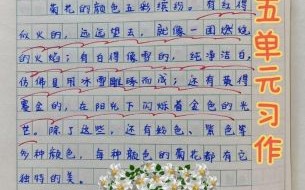 菊花的颜色五彩缤纷。有红得
似火的，远远望去，就像一团燃烧
的火焰；有白得像雪的，纯净洁白，
仿佛是用冰雪雕琢而成；还有黄得
像金的，在阳光下闪烁着金色的光
芒。除了这些，还有粉色、紫色等
多种颜色，每种颜色的菊花都有它
独特的美。
五单元习作